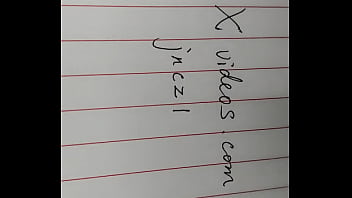 X videos.com
jnczl